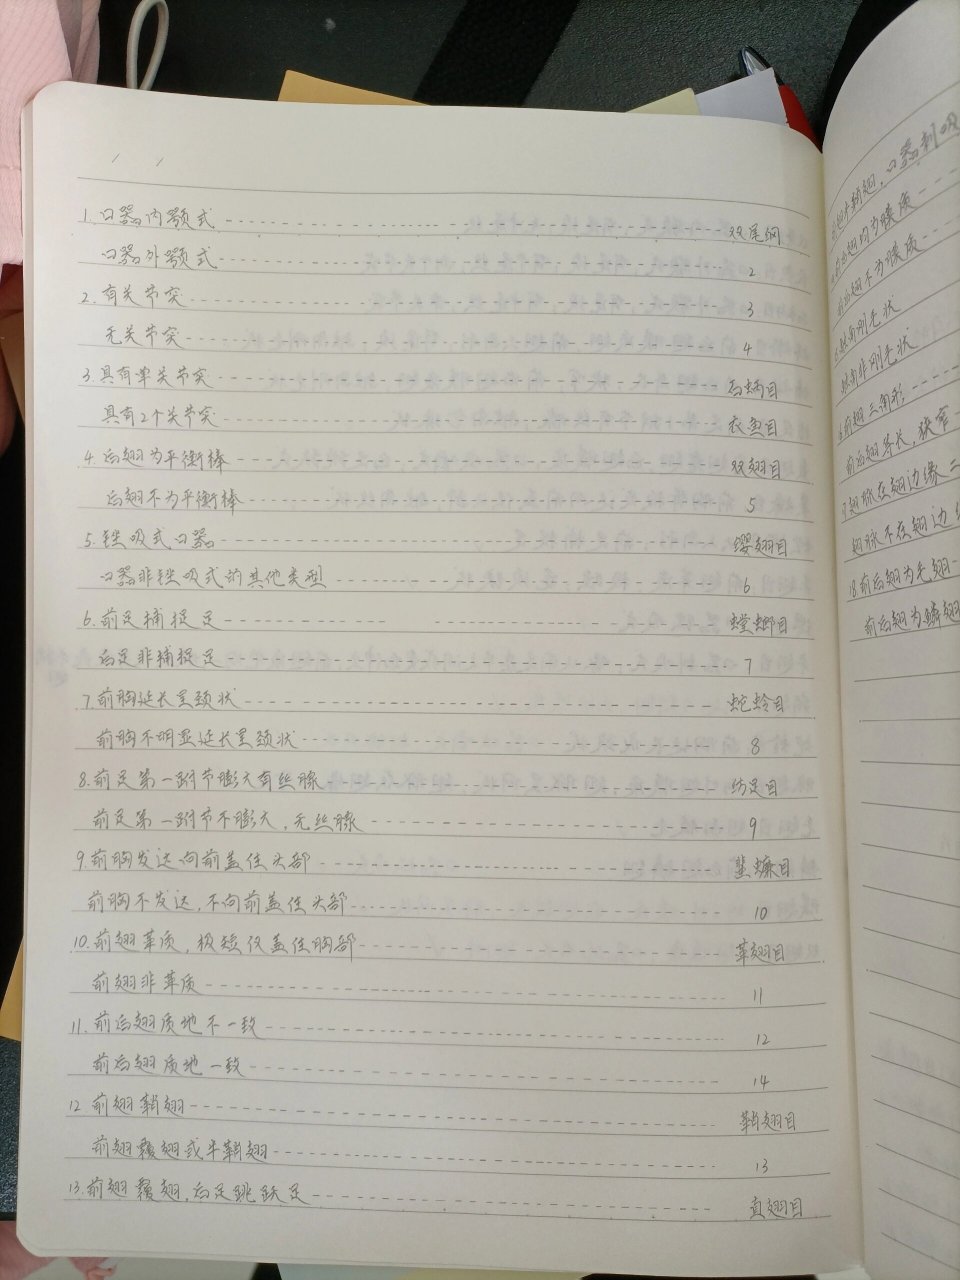 1.口器内颚式------双尾纲
口器外颚式------2
2.有关节突------3
无关节突------4
3.具有单关节突------石蛃目
具有2个关节突------衣鱼目
4.后翅为平衡棒------双翅目
后翅不为平衡棒------5
5.锉吸式口器------缨翅目
口器非锉吸式的其他类型------6
6.前足捕捉足------螳螂目
后足非捕捉足------7
7.前胸延长呈颈状------蛇蛉目
前胸不明显延长呈颈状------8
8.前足第一跗节膨大有丝腺------纺足目
前足第一跗节不膨大,无丝腺------9
9.前胸发达向前盖住头部------蜚蠊目
前胸不发达,不向前盖住头部------10
10.前翅革质,极短仅盖住胸部------革翅目
前翅非革质------11
11.前后翅质地不一致------12
前后翅质地一致------14
12 前翅鞘翅------鞘翅目
前翅覆翅或半鞘翅------13
13.前翅覆翅,后足跳跃足------直翅目
前翅半鞘翅,口器刺吸
前后翅均为膜质----
前后翅不为膜质---
触角刚毛状
触角非刚毛状
前翅三角形-----
前后翅等长,狭窄
翅脉在翅边缘二
翅脉不在翅边
18.前后翅为毛翅--
前后翅为鳞翅